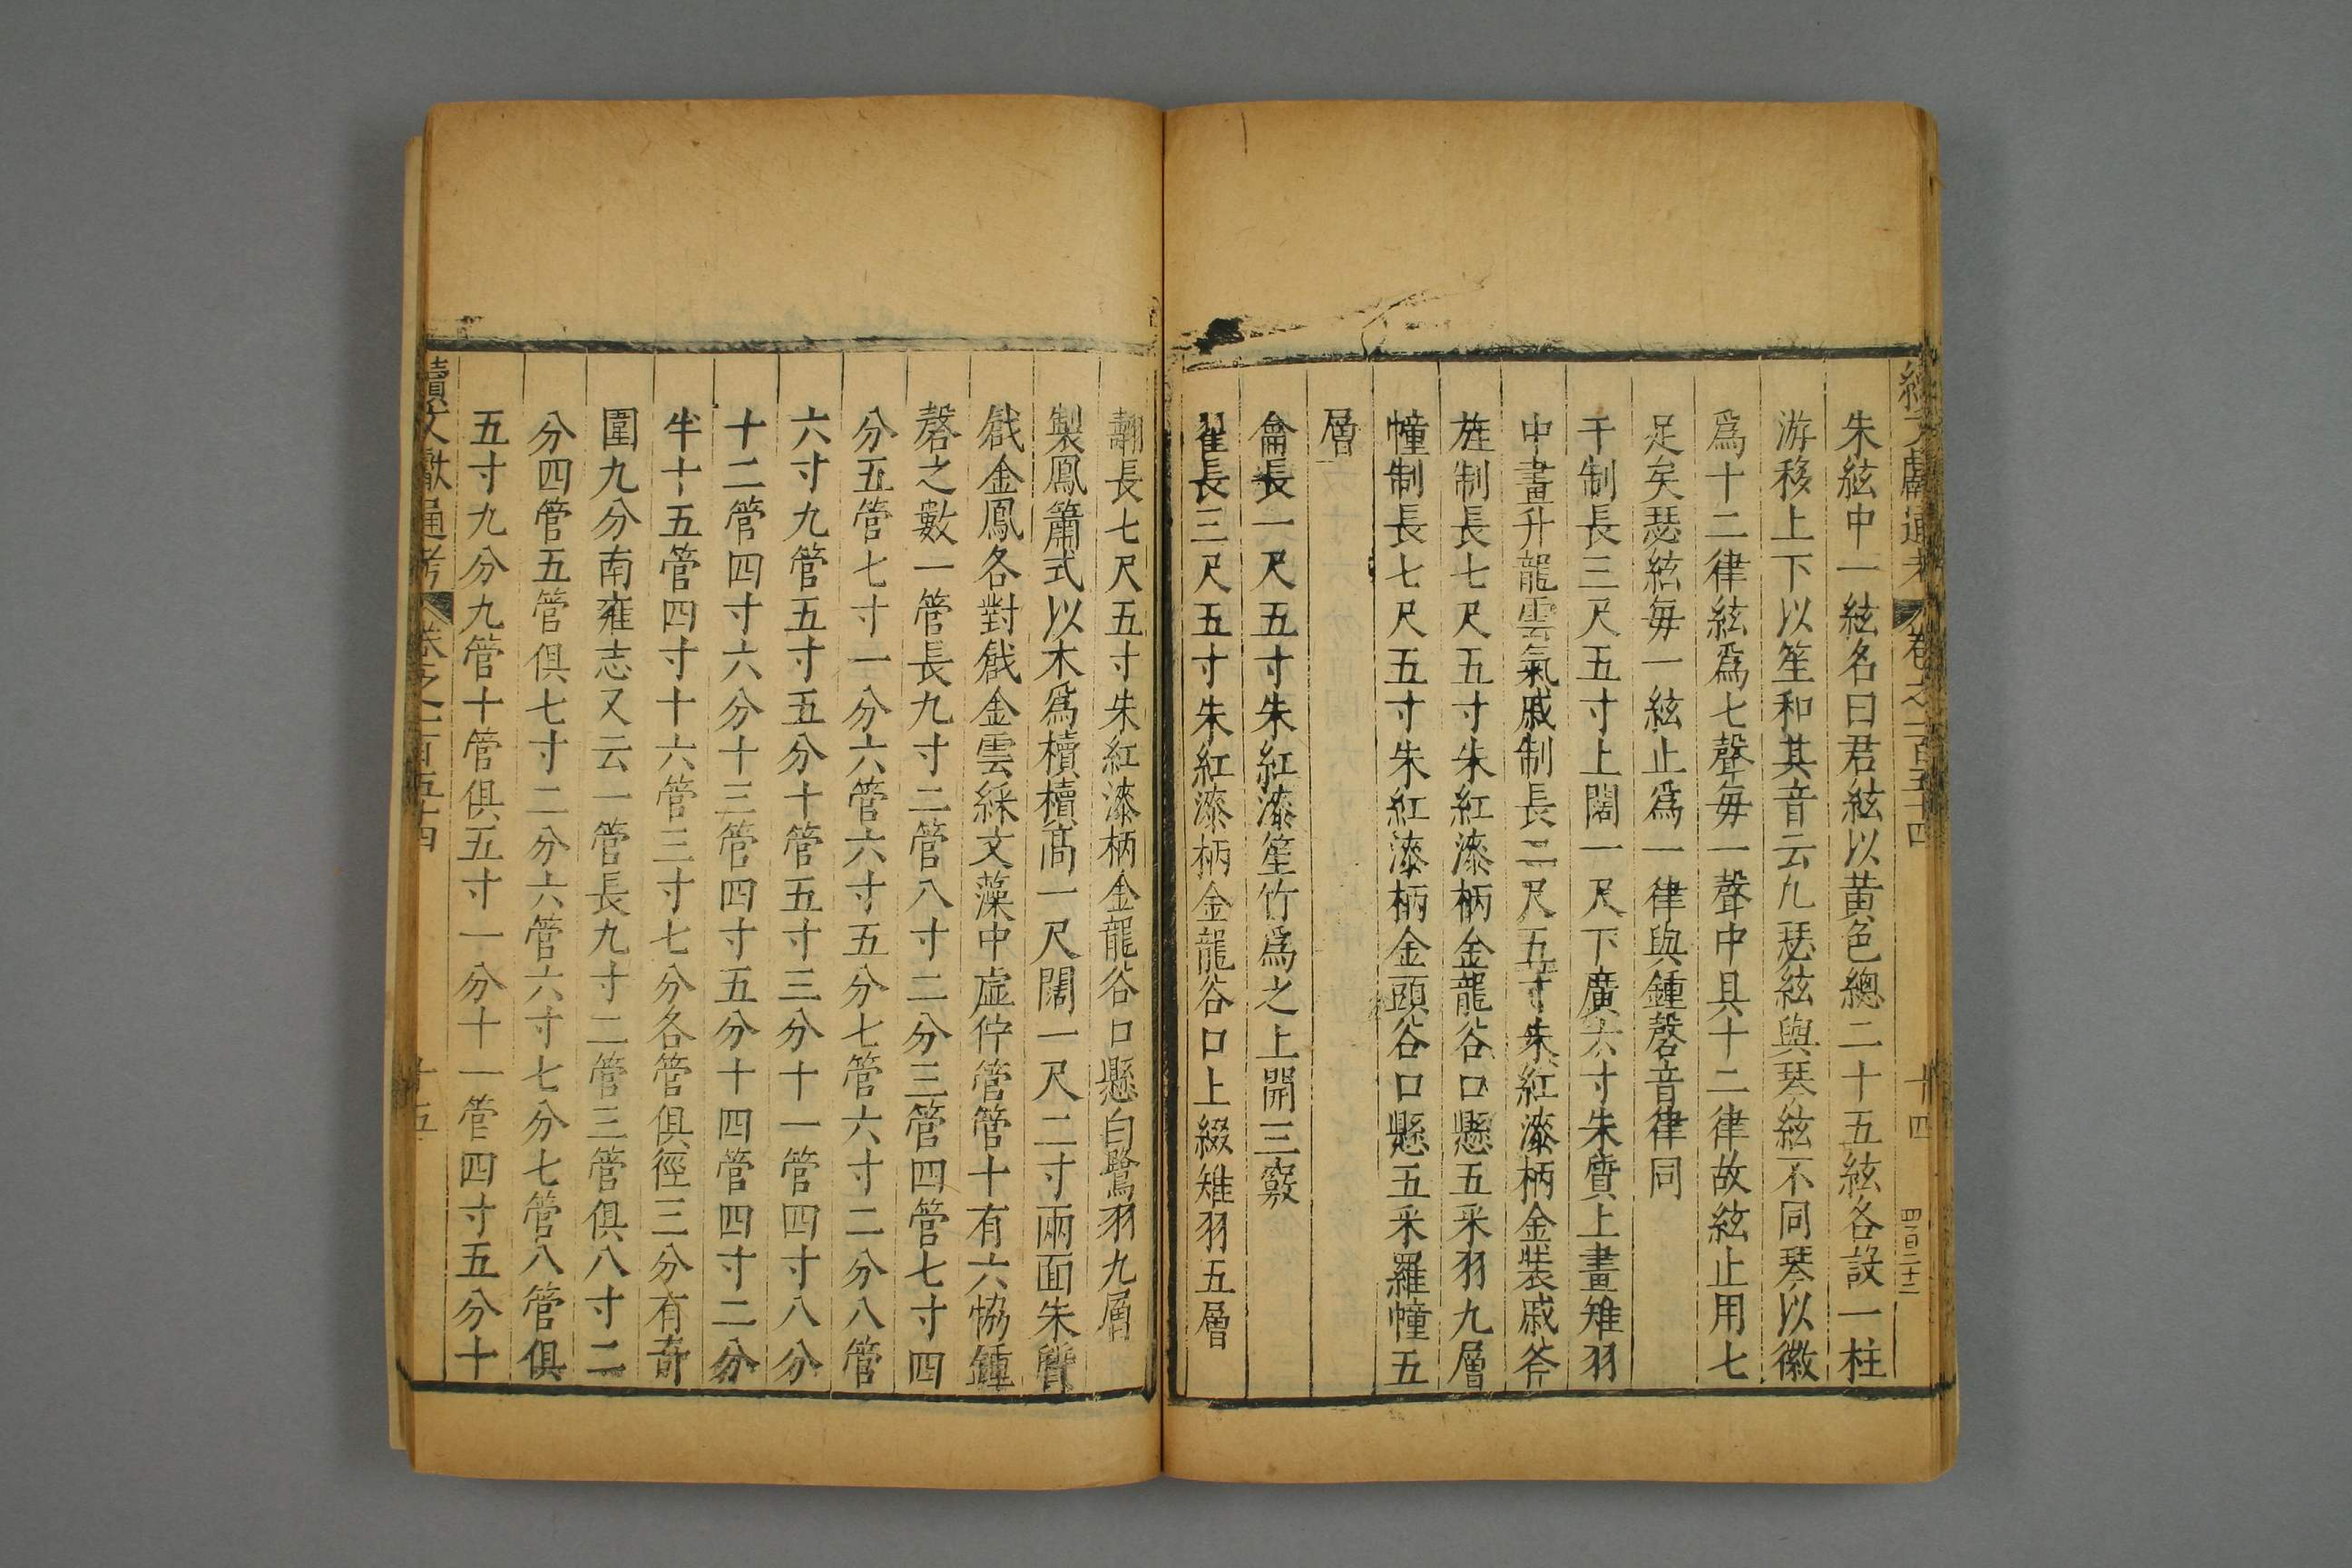 續文獻通考 卷之一百五十四 十四 四百二十二
朱絃中一絃名曰君絃以黄色總二十五絃各設一柱
游移上下以笙和其音云凡瑟絃與琴絃不同琴以徽
爲十二律絃爲七聲每一聲中具十二律故絃止用七
足矣瑟絃每一絃止爲一律與鍾磬音律同
干制長三尺五寸上闊一尺下廣六寸朱質上畫雉羽
中畫升龍雲氣戚制長二尺五寸朱紅漆柄金裝戚斧
旌制長七尺五寸朱紅漆柄金龍谷口懸五采羽九層
幢制長七尺五寸朱紅漆柄金頭谷口懸五采羅幢五
層
龠長一尺五寸朱紅漆笙竹爲之上開三竅
翟長三尺五寸朱紅漆柄金龍谷口上綴雉羽五層
翿長七尺五寸朱紅漆柄金龍谷口懸白鷺羽九層
製鳳簫式以木爲櫝櫝髙一尺闊一尺二寸兩面朱質
戧金鳳各對戧金雲綵文藻中虛佇管管十有六恊鍾
磬之數一管長九寸二管八寸二分三管四管七寸四
分五管七寸一分六管六寸五分七管六寸二分八管
六寸九管五寸五分十管五寸三分十一管四寸八分
十二管四寸六分十三管四寸五分十四管四寸二分
半十五管四寸十六管三寸七分各管俱徑三分有奇
圍九分南雍志又云一管長九寸二管三管俱八寸二
分四管五管俱七寸二分六管六寸七分七管八管俱
五寸九分九管十管俱五寸一分十一管四寸五分十
續文獻通考 卷之一百五十四 十五